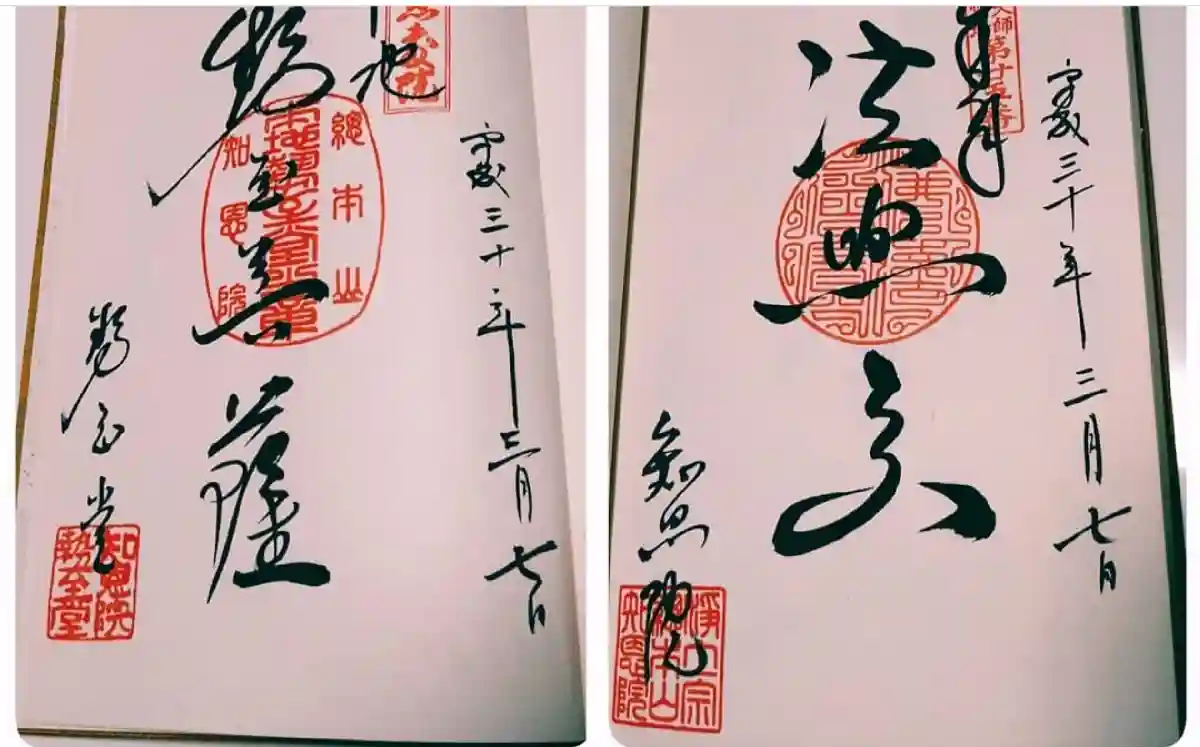 平成三十年三月七日
勢至菩薩
總本山
知恩院
勢至堂
知恩院
勢至堂
大師第廿五番
平成三十年三月七日
法然上人
知恩院
淨土宗
總本山
知恩院